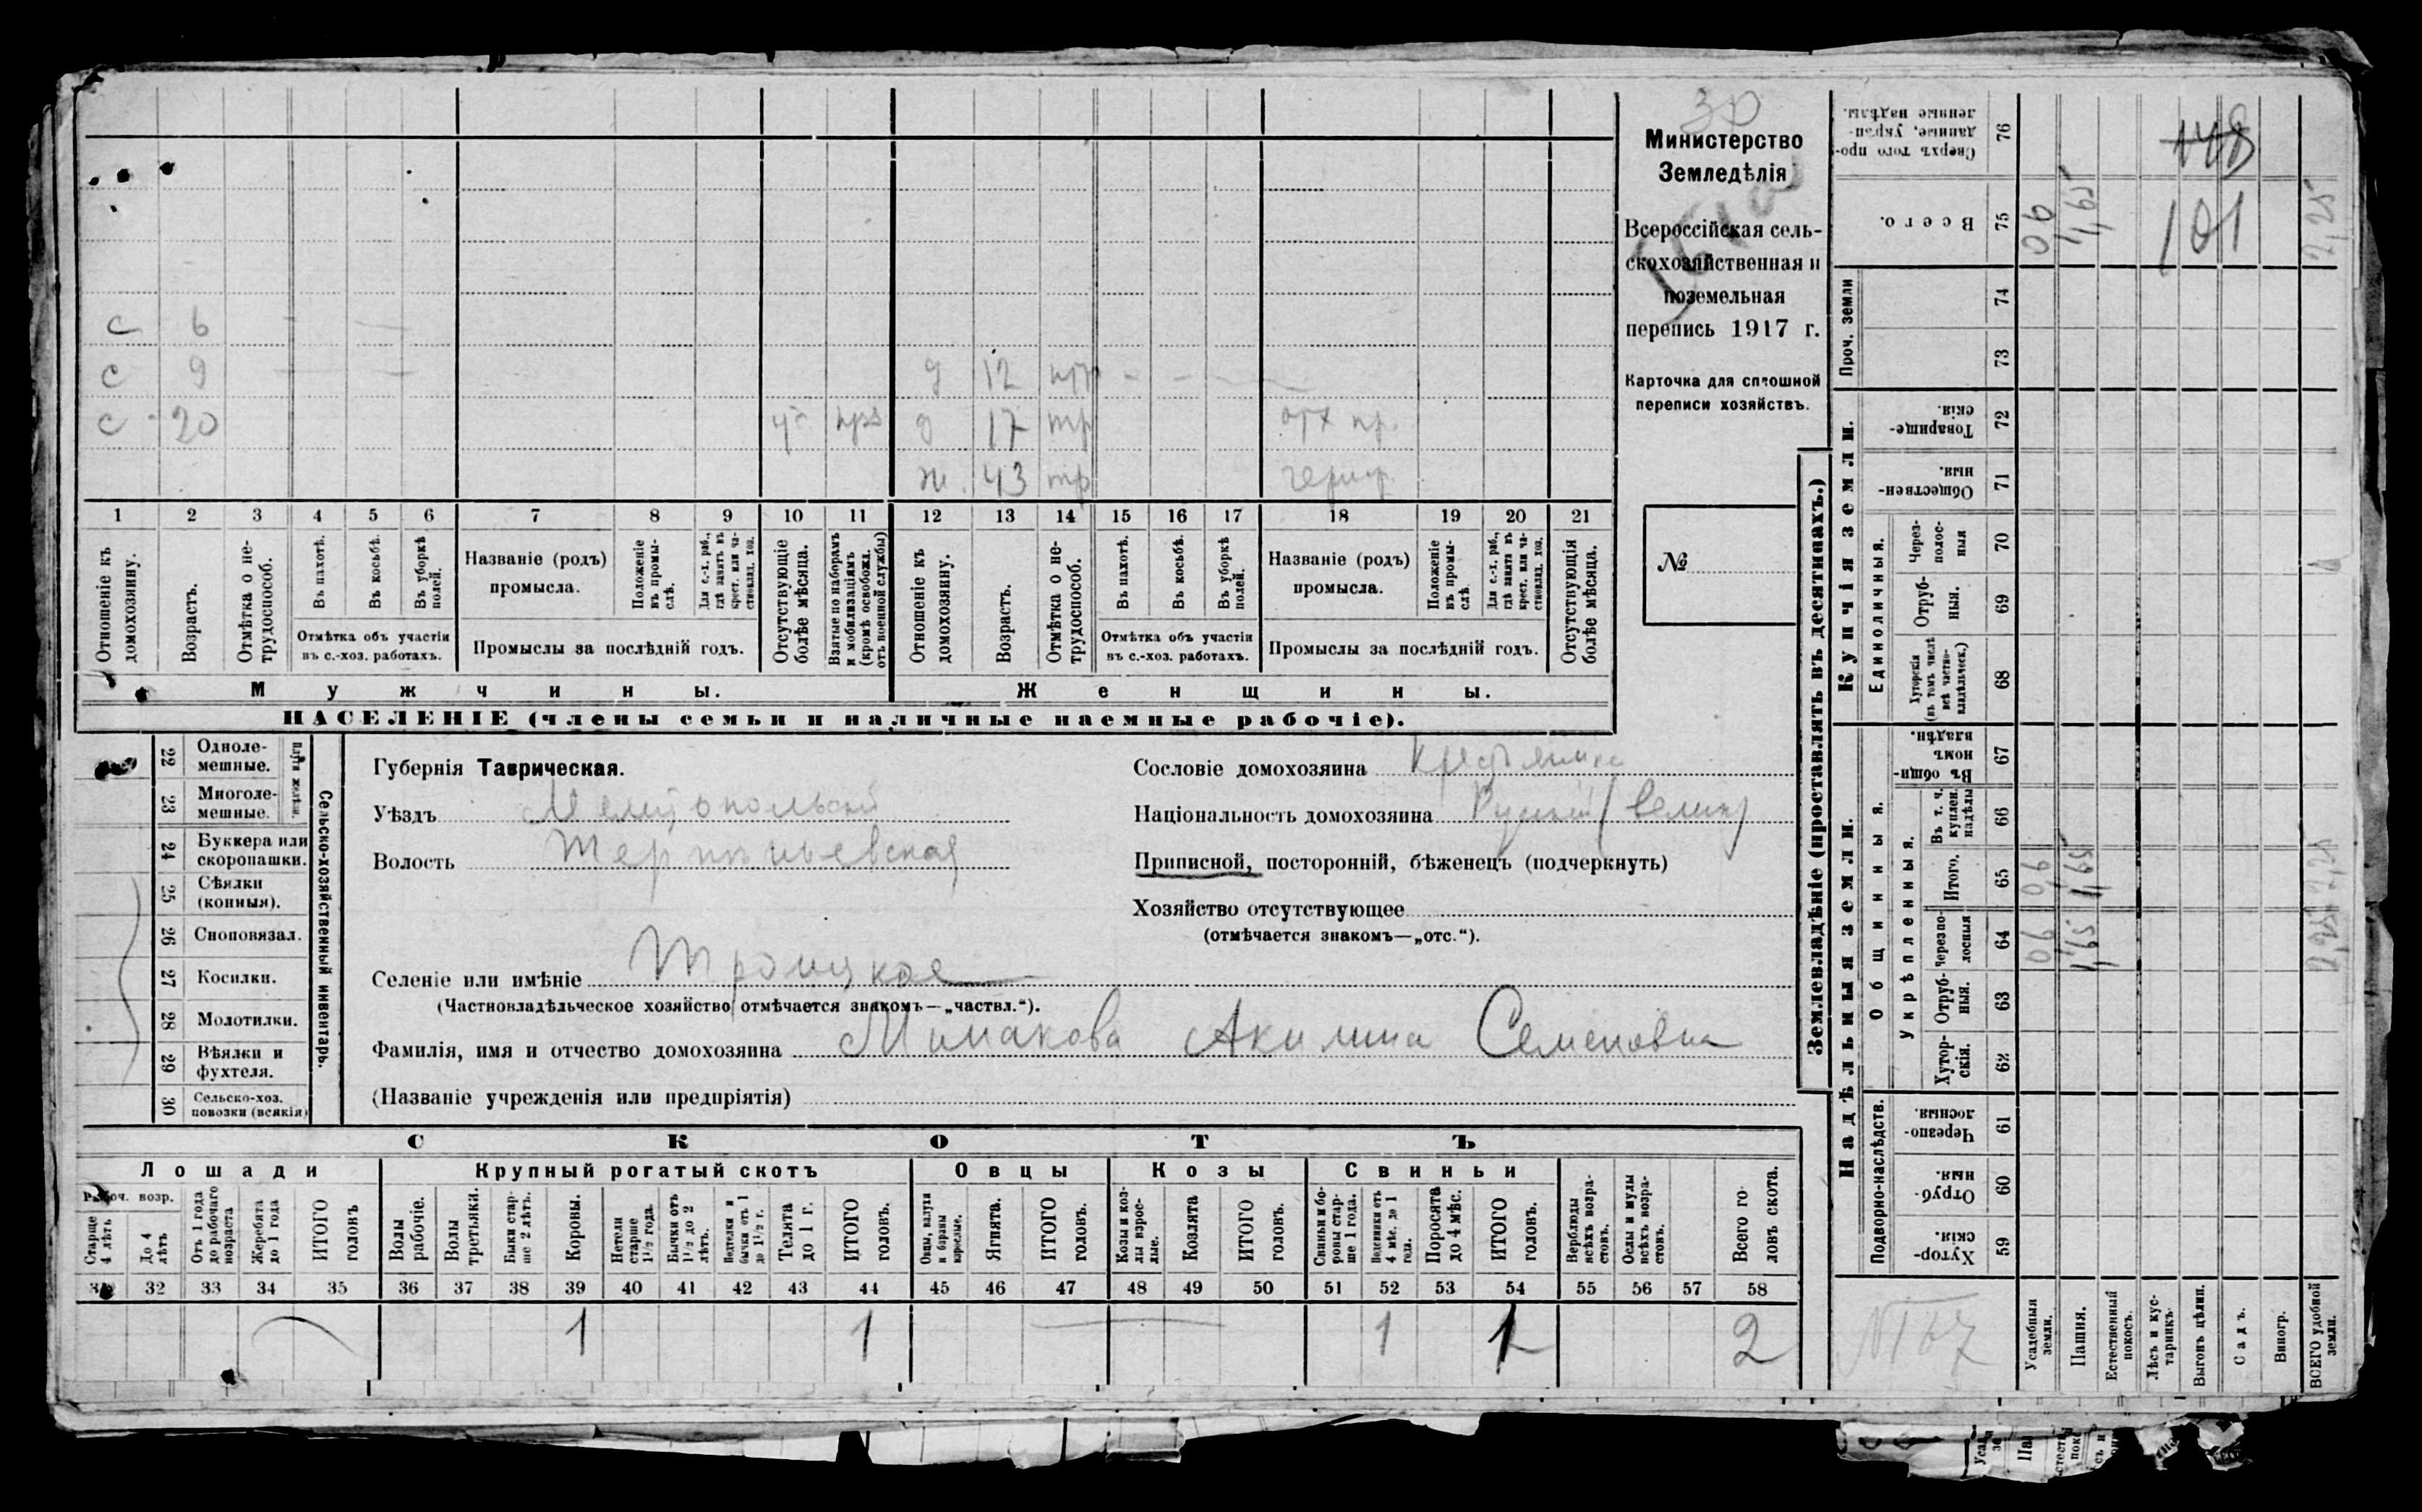 30
Министерство
Земледѣлія
Всероссійская сель-
скохозяйственная и
поземельная
перепись 1917 г.
Карточка для сплошной
переписи хозяйствъ.
№
с 6
с 9 д 12
с 20 д 17 тр
ж 43 тр
1 2 3 4 5 6 7 8 9 10 11 12 13 14 15 16 17 18 19 20 21
Отношеніе къ домохозяину.
Возрастъ.
Отмѣтка о не-трудоспособ.
Въ пахотѣ.
Въ косьбѣ.
Въ уборкѣ полей.
Отмѣтка объ участіи
въ с.-хоз. работахъ.
Названіе (родъ)
промысла.
Положеніе въ промы-слѣ.
Для с.-х. раб., гдѣ занятъ въ крест. или ча-стновлад. хоз.
Промыслы за послѣдній годъ.
Отсутствующіе болѣе мѣсяца.
Взятые по наборамъ и мобилизаціямъ (кромѣ освобожд. отъ военной службы)
Отношеніе къ домохозяину.
Возрастъ.
Отмѣтка о не-трудоспособ.
Въ пахотѣ.
Въ косьбѣ.
Въ уборкѣ полей.
Отмѣтка объ участіи
въ с.-хоз. работахъ.
Названіе (родъ)
промысла.
Положеніе въ промы-слѣ.
Для с.-х. раб., гдѣ занята въ крест. или ча-стновлад. хоз.
Промыслы за послѣдній годъ.
Отсутствующія болѣе мѣсяца.
Мужчины. Женщины.
НАСЕЛЕНІЕ (члены семьи и наличные наемные рабочіе).
22 Одноле-мешные.
23 Многоле-мешные.
24 Буккера или скоропашки.
25 Сѣялки (конныя).
26 Сноповязал.
27 Косилки.
28 Молотилки.
29 Вѣялки и фухтеля.
30 Сельско-хоз. повозки (всякія)
Сельско-хозяйственный инвентарь.
Губернія Таврическая.
Уѣздъ Мелитопольскій
Волость Терпѣньевская
Селеніе или имѣніе Троицкое
(Частновладѣльческое хозяйство отмѣчается знакомъ—„частвл.“).
Фамилія, имя и отчество домохозяина Минакова Акилина Семеновна
(Названіе учрежденія или предпріятія)
Сословіе домохозяина
Національность домохозяина Русскій (велик)
Приписной, посторонній, бѣженецъ (подчеркнуть)
Хозяйство отсутствующее
(отмѣчается знакомъ—„отс.“).
СКОТЪ
Лошади Крупный рогатый скотъ Овцы Козы Свиньи
Рабоч. возр.
Старше 4 лѣтъ
До 4 лѣтъ
Отъ 1 года до рабочаго возраста
Жеребята до 1 года
ИТОГО головъ
Волы рабочіе.
Волы третьяки.
Быки стар-ше 2 лѣтъ.
Коровы.
Нетели старше 1½ года.
Бычки отъ 1½ до 2 лѣтъ.
Подтелки и бычки отъ 1 до 1½ г.
Телята до 1 г.
ИТОГО головъ.
Овцы, валухи и бараны взрослые.
Ягнята.
ИТОГО головъ.
Козы и коз-лы взрос-лые.
Козлята
ИТОГО головъ.
Свиньи и бо-ровы стар-ше 1 года.
Подсвинки отъ 4 мѣс. до 1 года.
Поросята до 4 мѣс.
ИТОГО головъ.
Верблюды всѣхъ возра-стовъ.
Ослы и мулы всѣхъ возра-стовъ.
Всего го-ловъ скота.
31 32 33 34 35 36 37 38 39 40 41 42 43 44 45 46 47 48 49 50 51 52 53 54 55 56 57 58
1 1 1 1 2
Землевладѣніе (проставлять въ десятинахъ.)
Купчія земли.
Надѣльныя земли.
Сверхъ того про-данные, укрѣп-ленные надѣлы. 76 148
Всего. 75 101
Проч. земли 74
73
Товарище-скія. 72
Обществен-ныя. 71
Единоличныя.
Через-полос-ныя 70
Отруб-ныя. 69
Хуторскія (въ томъ числѣ всѣ частно-владѣльческ.) 68
Общинныя.
Въ общи-номъ владѣн. 67
Укрѣпленныя.
Въ т. ч. куплен. надѣлы 66
Итого. 65
Черезпо-лосныя 64
Отруб-ныя. 63
Хутор-скія. 62
Подворно-наслѣдств.
Черезпо-лосныя. 61
Отруб-ныя. 60
Хутор-скія. 59
Усадебныя земли.
Пашня.
Естественный покосъ.
Лѣсъ и кус-тарникъ.
Выгонъ цѣлин.
Садъ.
Виногр.
ВСЕГО удобной земли.